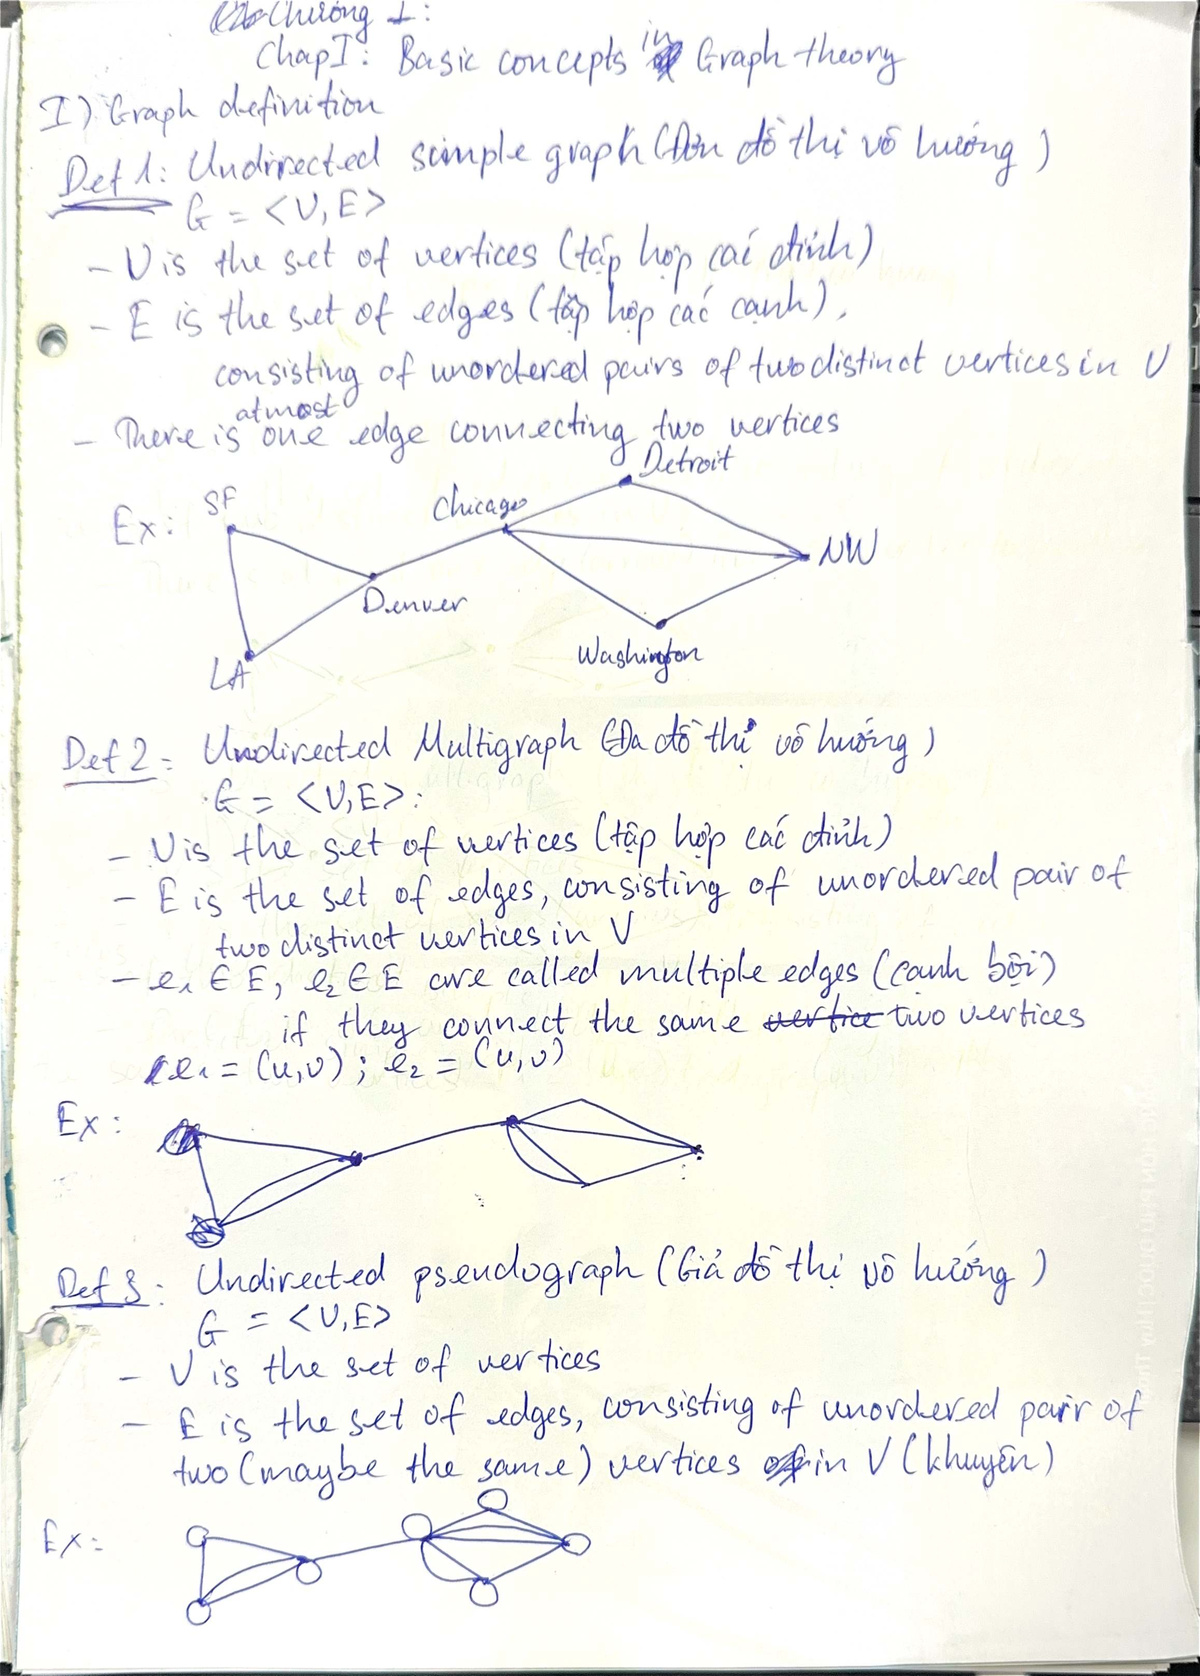 Chương I:
Chap I: Basic concepts in Graph theory
I) Graph definition
Def 1: Undirected simple graph (Đơn đồ thị vô hướng)
G = <V, E>
- V is the set of vertices (tập hợp các đỉnh)
- E is the set of edges (tập hợp các cạnh),
consisting of unordered pairs of two distinct vertices in V
atmost
- There is one edge connecting two vertices
Detroit
Ex: SF Chicago
NW
Denver
Washington
LA
Def 2: Undirected Multigraph (Đa đồ thị vô hướng)
G = <V, E>:
- V is the set of vertices (tập hợp các đỉnh)
- E is the set of edges, consisting of unordered pair of
two distinct vertices in V
- e₁ ∈ E, e₂ ∈ E are called multiple edges (cạnh bội)
if they connect the same vertice two vertices
e₁ = (u,v) ; e₂ = (u,v)
Ex:
Def 3: Undirected pseudograph (Giả đồ thị vô hướng)
G = <V, E>
- V is the set of vertices
- E is the set of edges, consisting of unordered pair of
two (maybe the same) vertices in V (khuyên)
Ex: